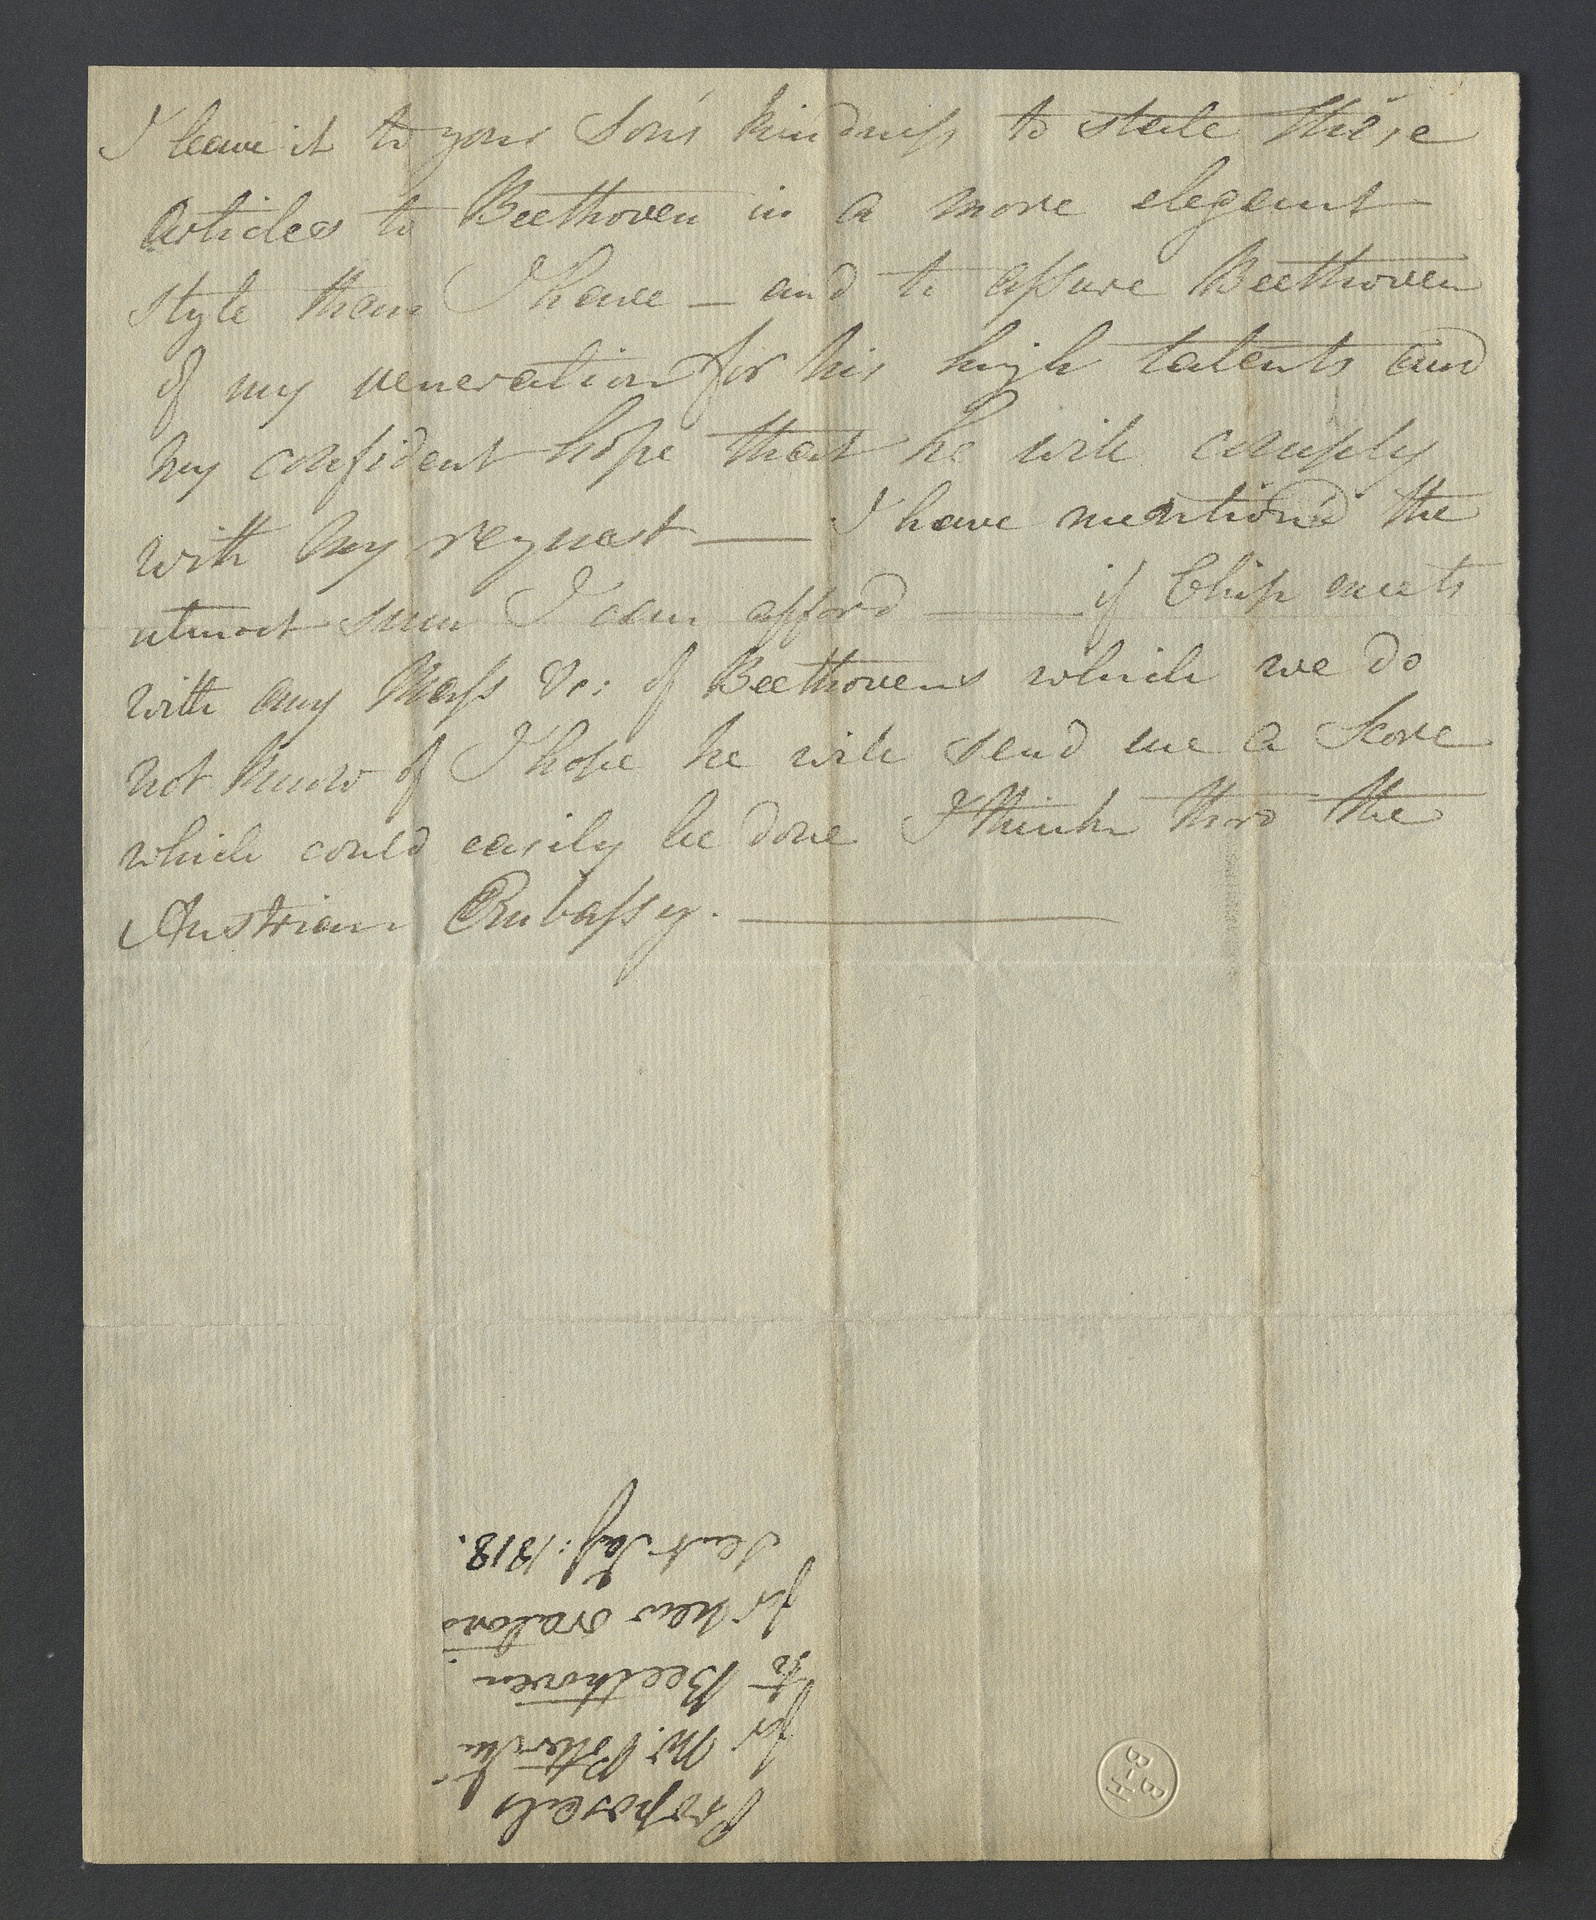 I leave it to your Son's kindness to state these
articles to Beethoven in a more elegant
style than I have — and to assure Beethoven
of my veneration for his high talents and
my confident hope that he will comply
with my request — I have mention'd the
utmost sum I can afford — if Chip meets
with any Mass &c: of Beethovens which we do
not know of I hope he will send me a Score
which could easily be done I think thro the
Austrian Embassy. —
Proposals
for Mr. Potter Jun
to Beethoven
for new
Sent 1818.
B
B-H